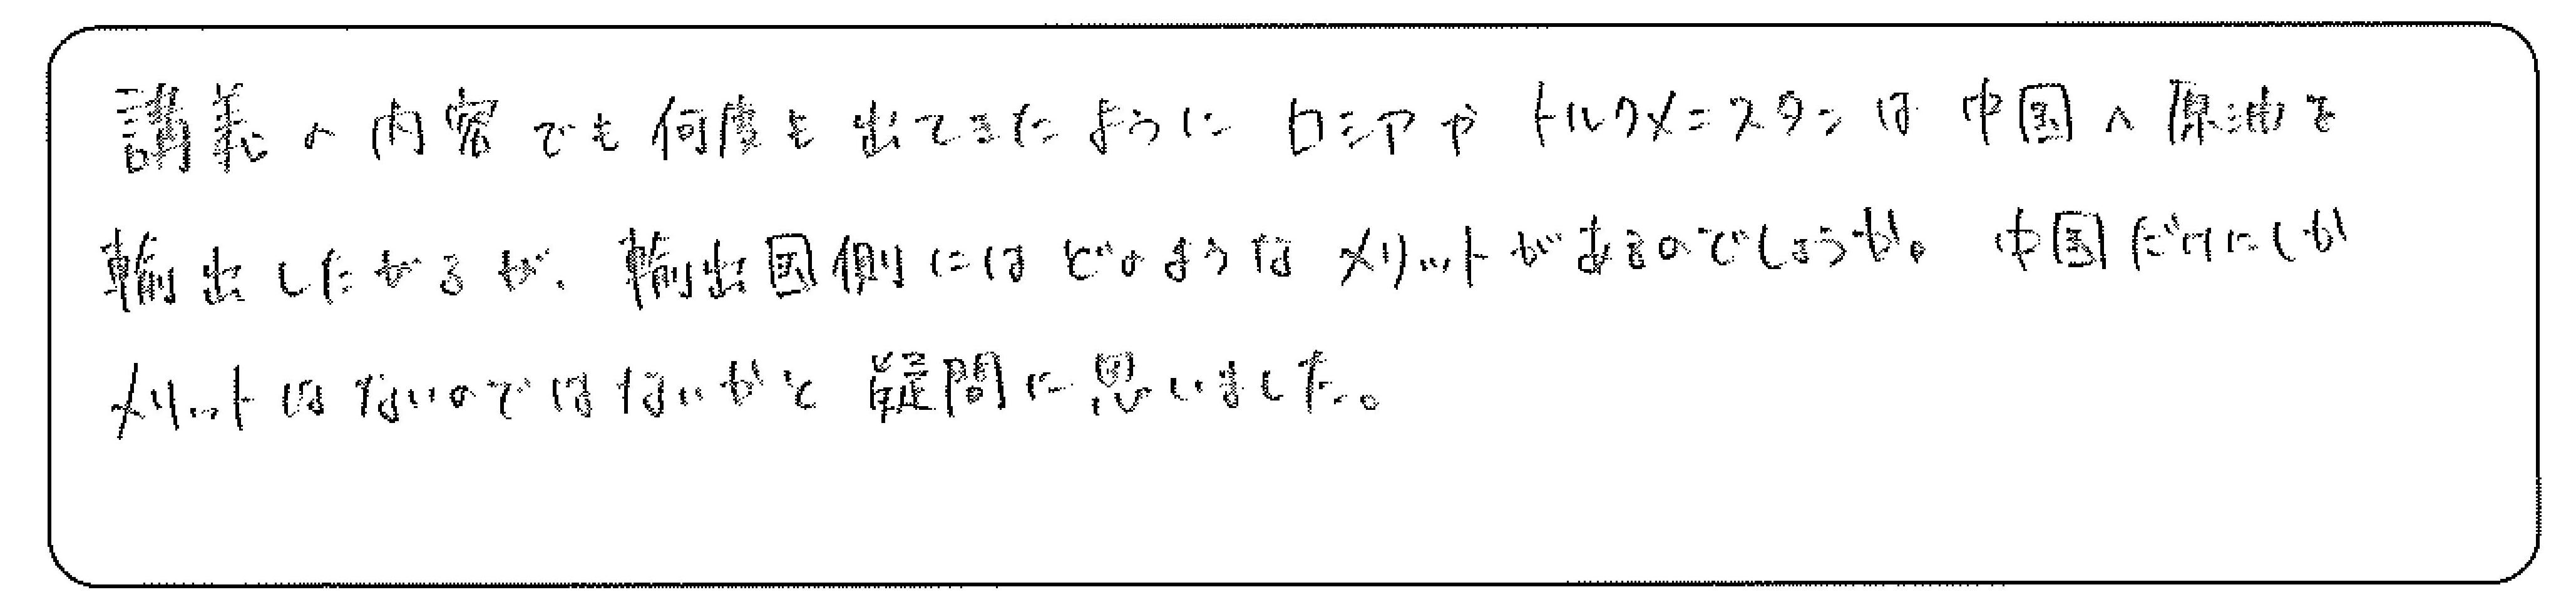 講義の内容でも何度も出てきたように ロシアや トルクメニスタンは 中国へ原油を
輸出したがるが、輸出国側にはどのような メリットがあるのでしょうか。 中国だけにしか
メリットはないのではないかと 疑問に思いました。